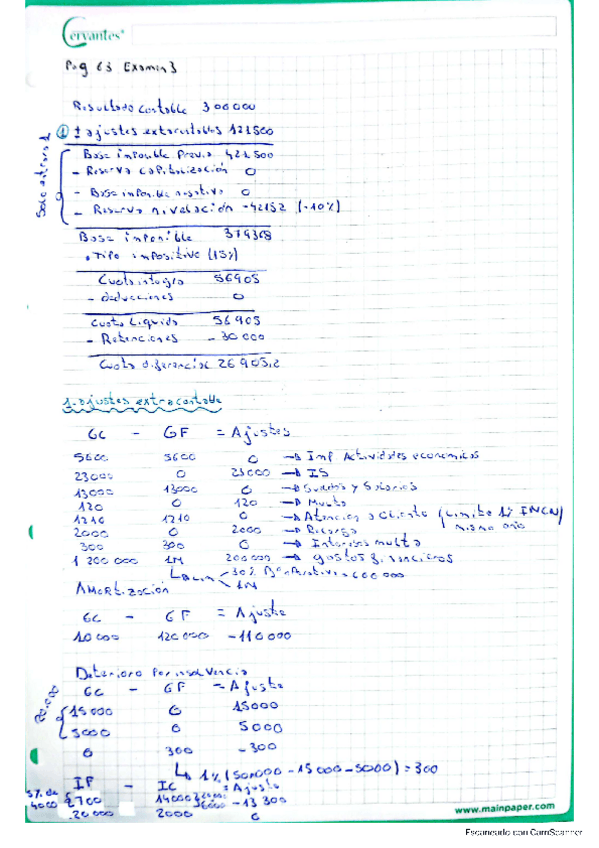 Cervantes
Pag 63 Examen 3
Resultado contable 300000
① ± ajustes extracontables 121500
Base imponible previa 421500
- Reserva capitalización 0
- Base imponible negativa 0
- Reserva nivelación -42152 (-10%)
Base imponible 379368
• Tipo impositivo (15%)
Cuota integra 56905
- deducciones 0
Cuota liquida 56905
- Retenciones - 30000
Cuota diferencial 26905,2
1. ajustes extracontable
GC - GF = Ajustes
5600 5600 0 → Imp Actividades economicas
23000 0 23000 → IS
13000 13000 0 → Sueldos y Salarios
120 0 120 → Multa
1210 1210 0 → Atencion a cliente (limite 1% INCN) mismo año
2000 0 2000 → Recargo
300 300 0 → Intereses multa
1 200 000 1M 200000 → gastos financieros
30% = 600 000
1M
AMORTIZACIÓN
GC - GF = Ajuste
10000 120000 -110000
Deterioro Por insolvencia
GC - GF = Ajuste
15000 0 15000
5000 0 5000
0 300 -300
↳ 1% (50.000 - 15000 - 5000) = 300
IF - IC = Ajuste
5% de
2700 14000 -13300
20000 2000 0
www.mainpaper.com
Escaneado con CamScanner